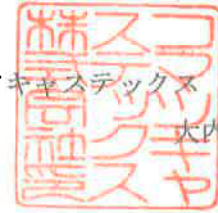 キャステックス
大内
コマツキャ
ステックス
株式会社印